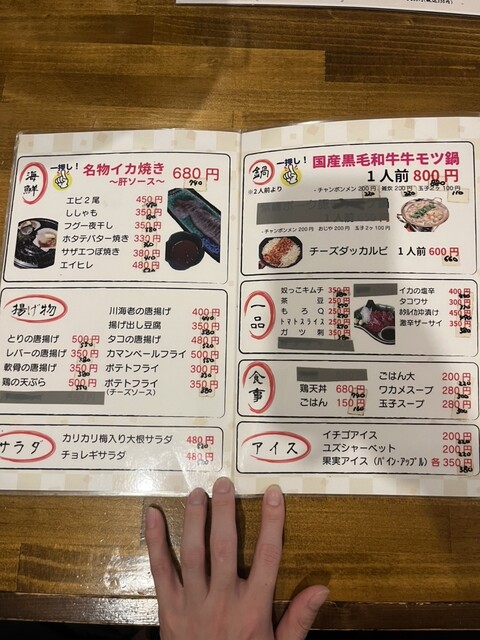 海鮮
一押し!
名物イカ焼き 680円
～肝ソース～
エビ2尾 450円
ししゃも 350円
フグ一夜干し 350円
ホタテバター焼き 330円
サザエつぼ焼き 380円
エイヒレ 480円
揚げ物
川海老の唐揚げ 400円
揚げ出し豆腐 350円
とりの唐揚げ 500円
タコの唐揚げ 480円
レバーの唐揚げ 350円
カマンベールフライ 500円
軟骨の唐揚げ 350円
ポテトフライ 300円
鶏の天ぷら 500円
ポテトフライ 350円
(チーズソース)
サラダ
カリカリ梅入り大根サラダ 480円
チョレギサラダ 480円
鍋
一押し!
国産黒毛和牛牛モツ鍋
※2人前より
1人前 800円
・チャンポンメン 200円 雑炊 200円 玉子2ヶ 100円
・チャンポンメン 200円 おじや 200円 玉子2ヶ 100円
チーズダッカルビ 1人前 600円
660
一品
奴っこキムチ 350円
茶豆 250円
もろQ 250円
トマトスライス 250円
ガツ刺 350円
イカの塩辛 400円
タコワサ 300円
ホタルイカ沖漬け 450円
激辛ザーサイ 350円
食事
ごはん大 200円
鶏天丼 680円
ワカメスープ 280円
ごはん 150円
玉子スープ 280円
アイス
イチゴアイス 200円
ユズシャーベット 200円
果実アイス (パイン・アップル) 各350円
380